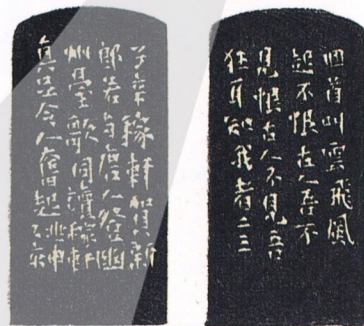 回首叫雲飛風
起不恨古人吾不
見恨古人不見吾
狂耳知我者二三
子辛稼軒賀新
郎若与唐人登幽
州臺歌同讀
真足令人奮起